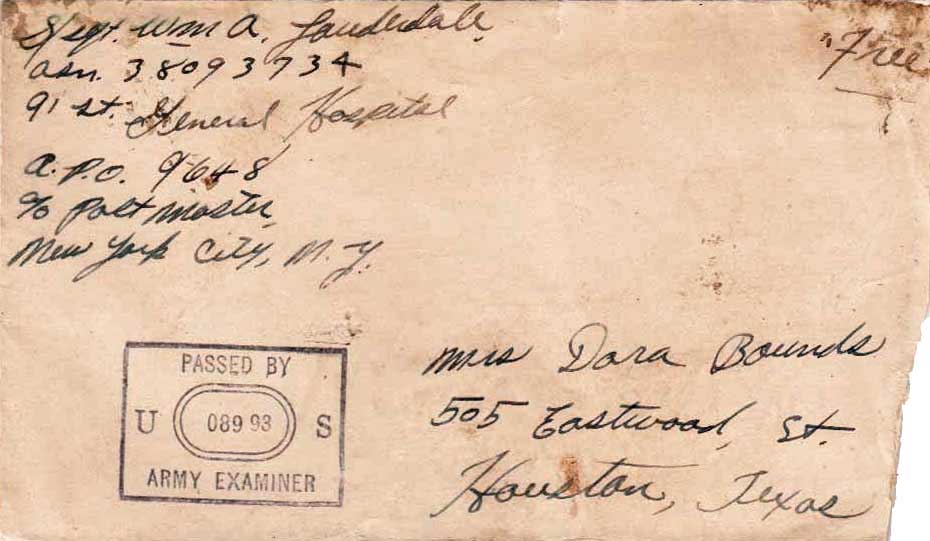 S/Sgt. Wm A. Lauderdale,
asn. 38093734
91 st. General Hospital
A.P.O. 9648
c/o Post Master,
New York City, N.Y.
"Free
PASSED BY
U 089 93 S
ARMY EXAMINER
Mrs Dora Bounds
505 Eastwood, St.
Houston, Texas